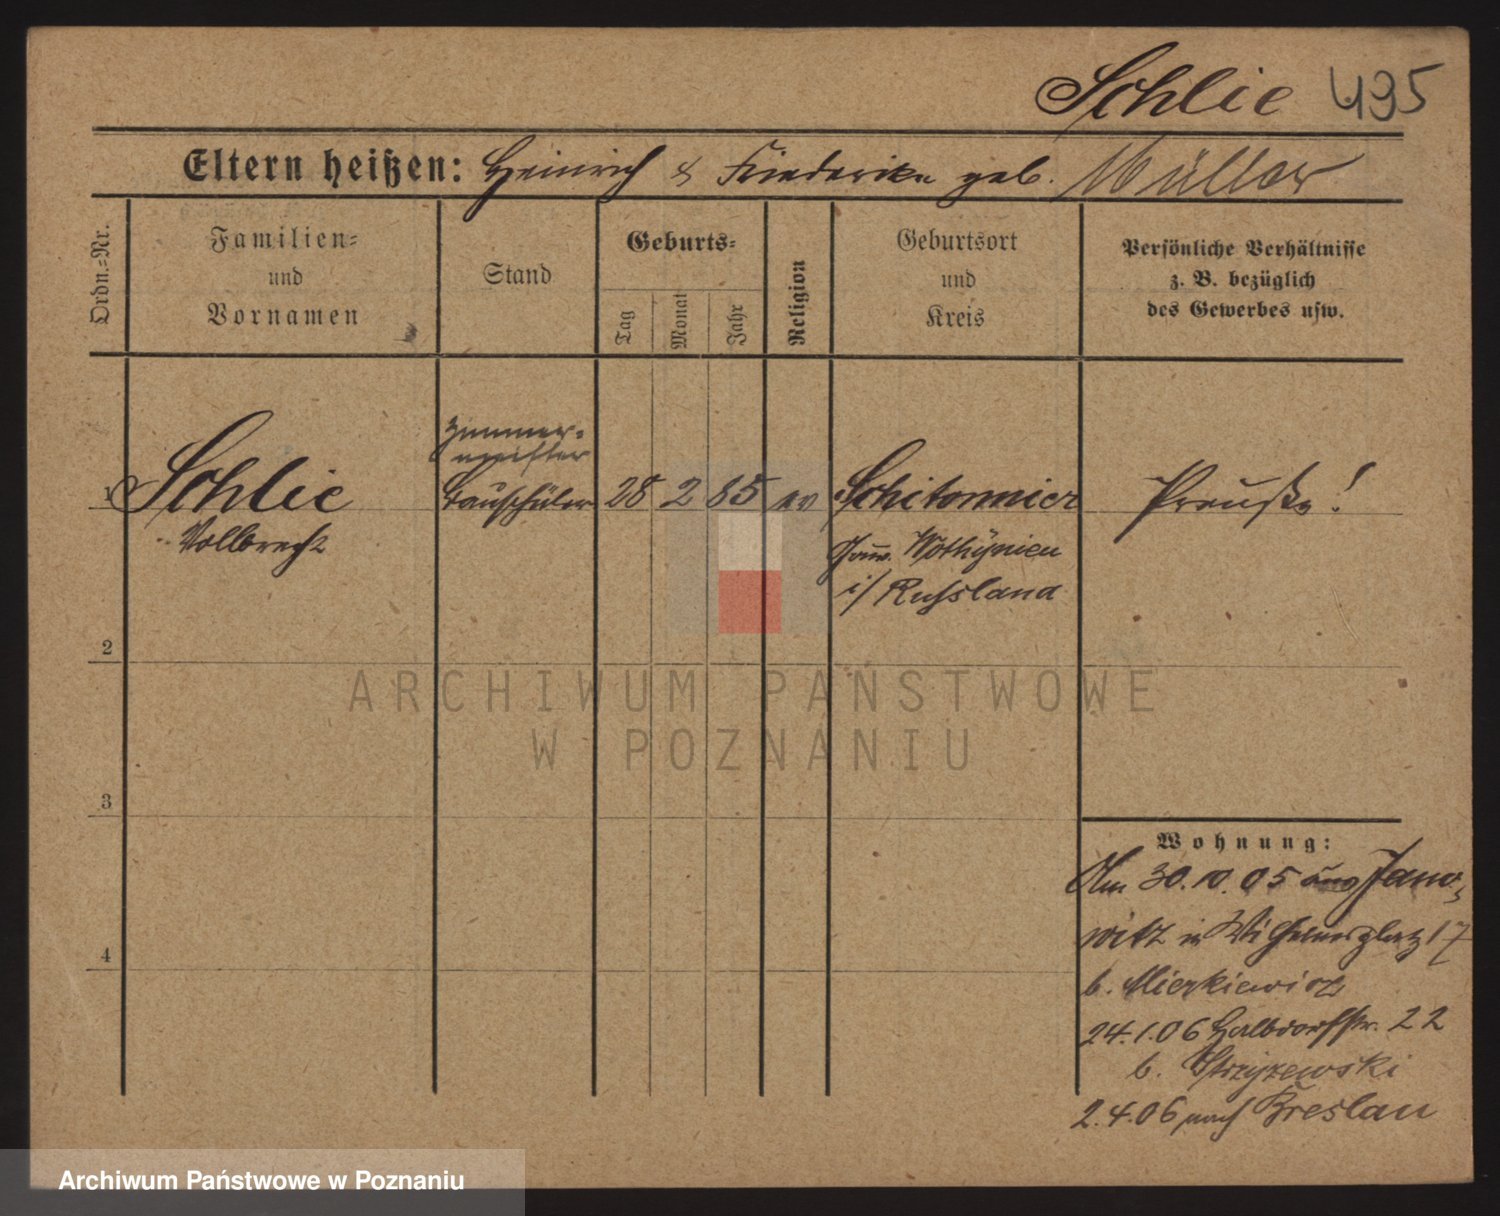 Schlie 495
Eltern heißen: Heinrich & Friederike geb. Müller
Ordn.-Nr.
Familien-
und
Vornamen
Stand
Geburts-
Tag
Monat
Jahr
Religion
Geburtsort
und
Kreis
Persönliche Verhältnisse
z. B. bezüglich
des Gewerbes usw.
Zimmer-
meister
1 Schlie Bauschüler 28 2 85 ev Schitommier Preuße!
Vollbrecht
Gouv. Wolhÿnien
i/ Russland
2
3
4
Wohnung:
Am 30.10.05 Jano-
witz in Wilhelmsplatz 17
b. Mierkiewicz
24.1.06 Halbdorfstr. 22
b. Strzyzewski
2.4.06 nach Breslau
ARCHIWUM PAŃSTWOWE
W POZNANIU
Archiwum Państwowe w Poznaniu